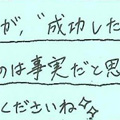 が,"成功した
のは事実だと思
くださいね